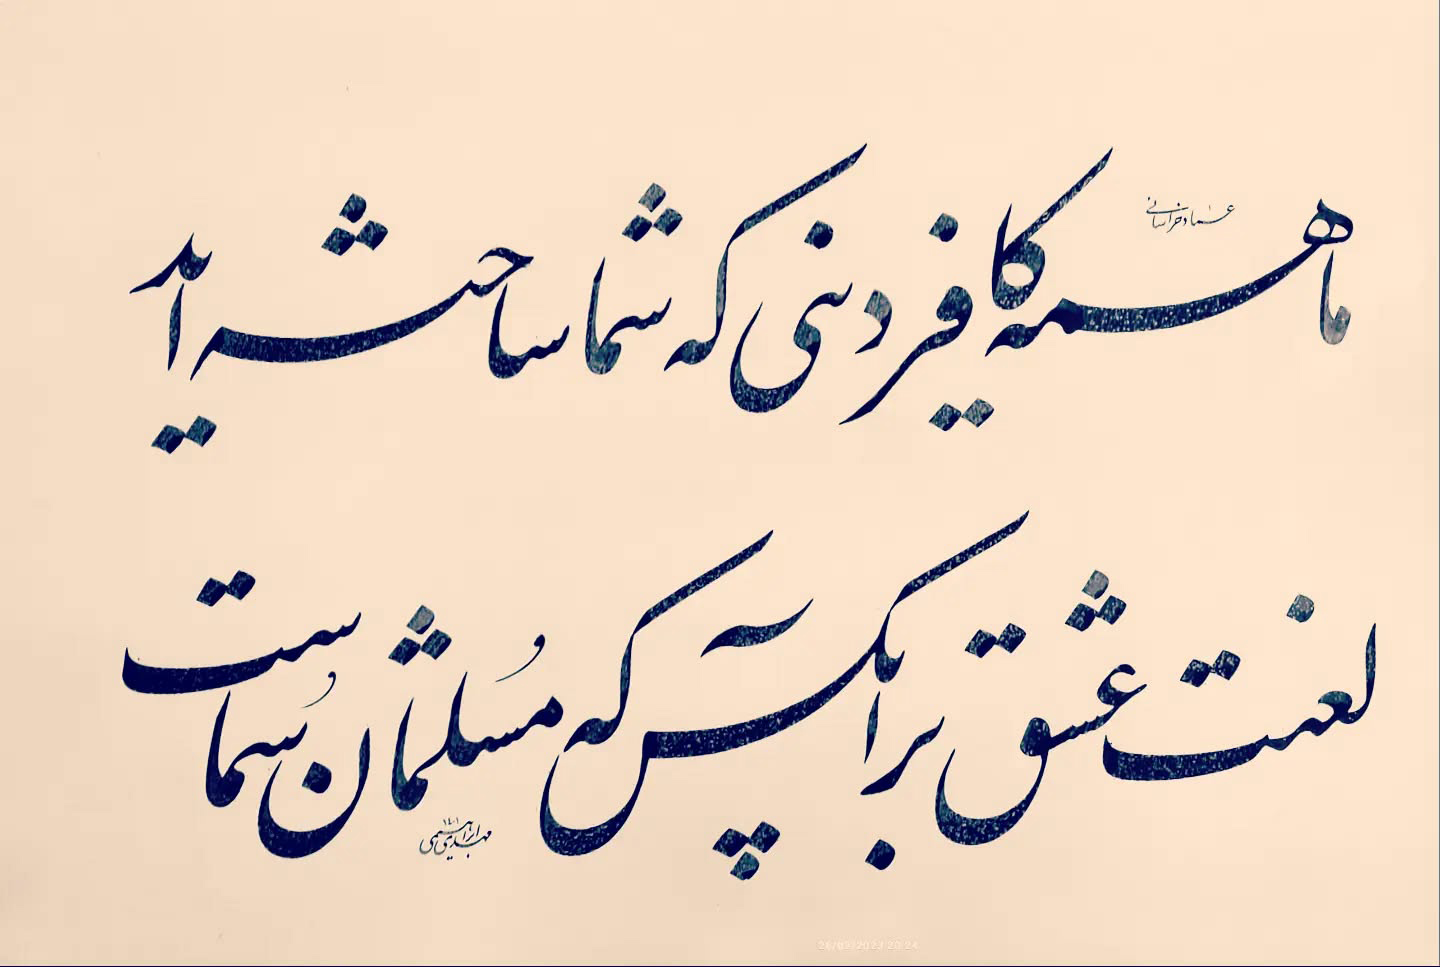 عماد خراسانی
ما همه کافر دینی که شما ساخته اید
لعنت عشق بر آنکس که مُسلمان شُماست
مهدی ابراهیمی ۱۴۰۱
26/09/2023 20:24